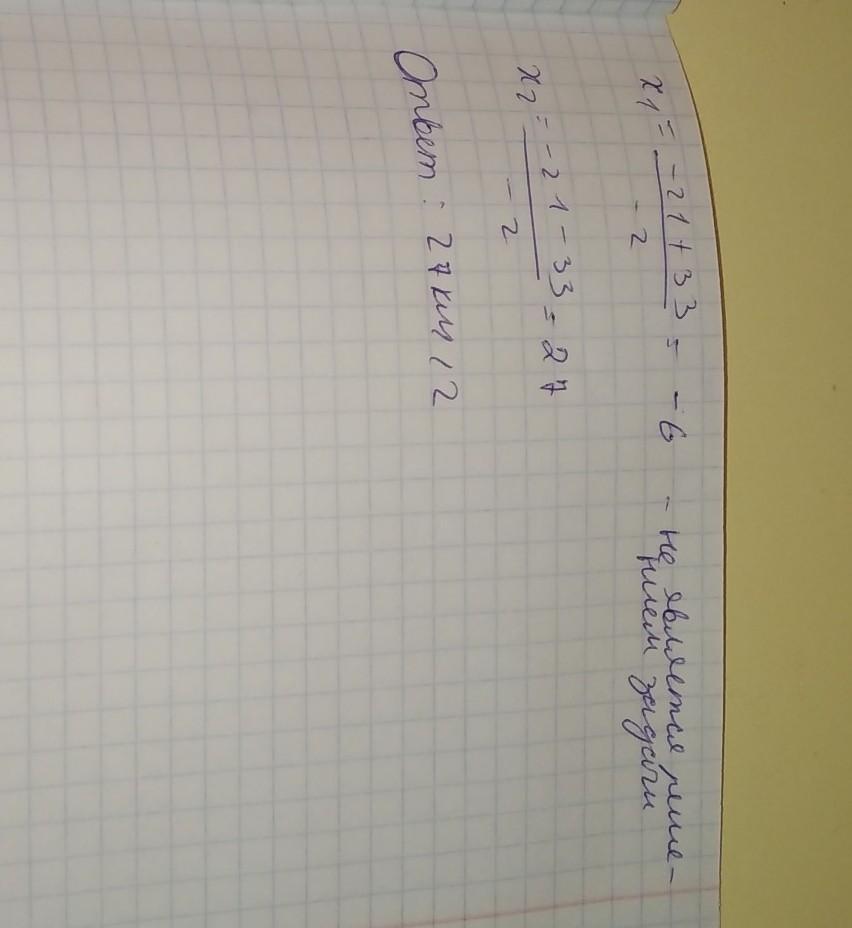 x₁ = -21+33 = -6 - не является реше-
-2
нием задачи
x₂ = -21-33 = 27
-2
Ответ: 27 км/2